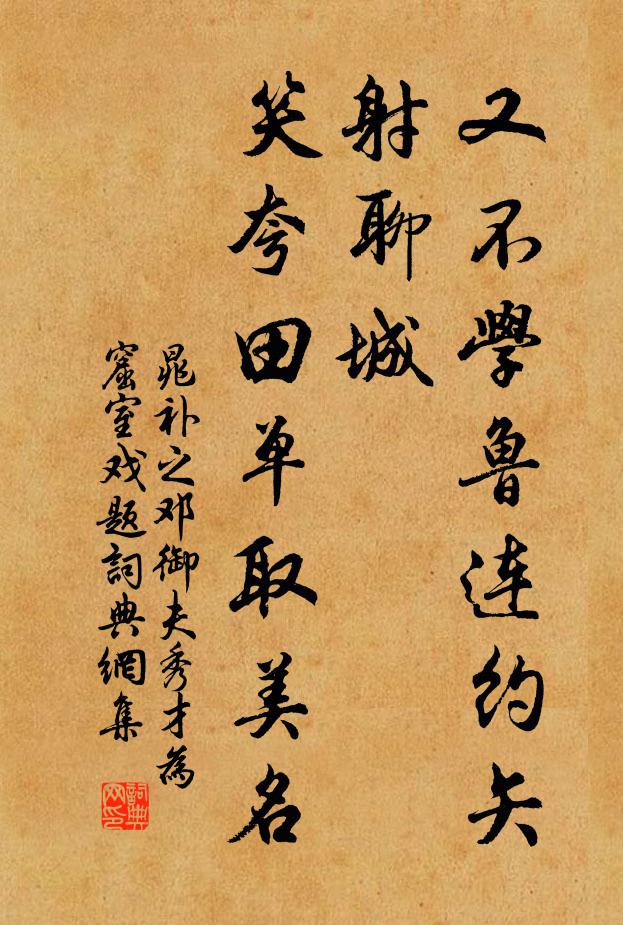 又不學魯连约矢
射聊城
笑夸田单取美名
晁补之邓御夫秀才為
窟室戏题詞典網集
詞典
网印